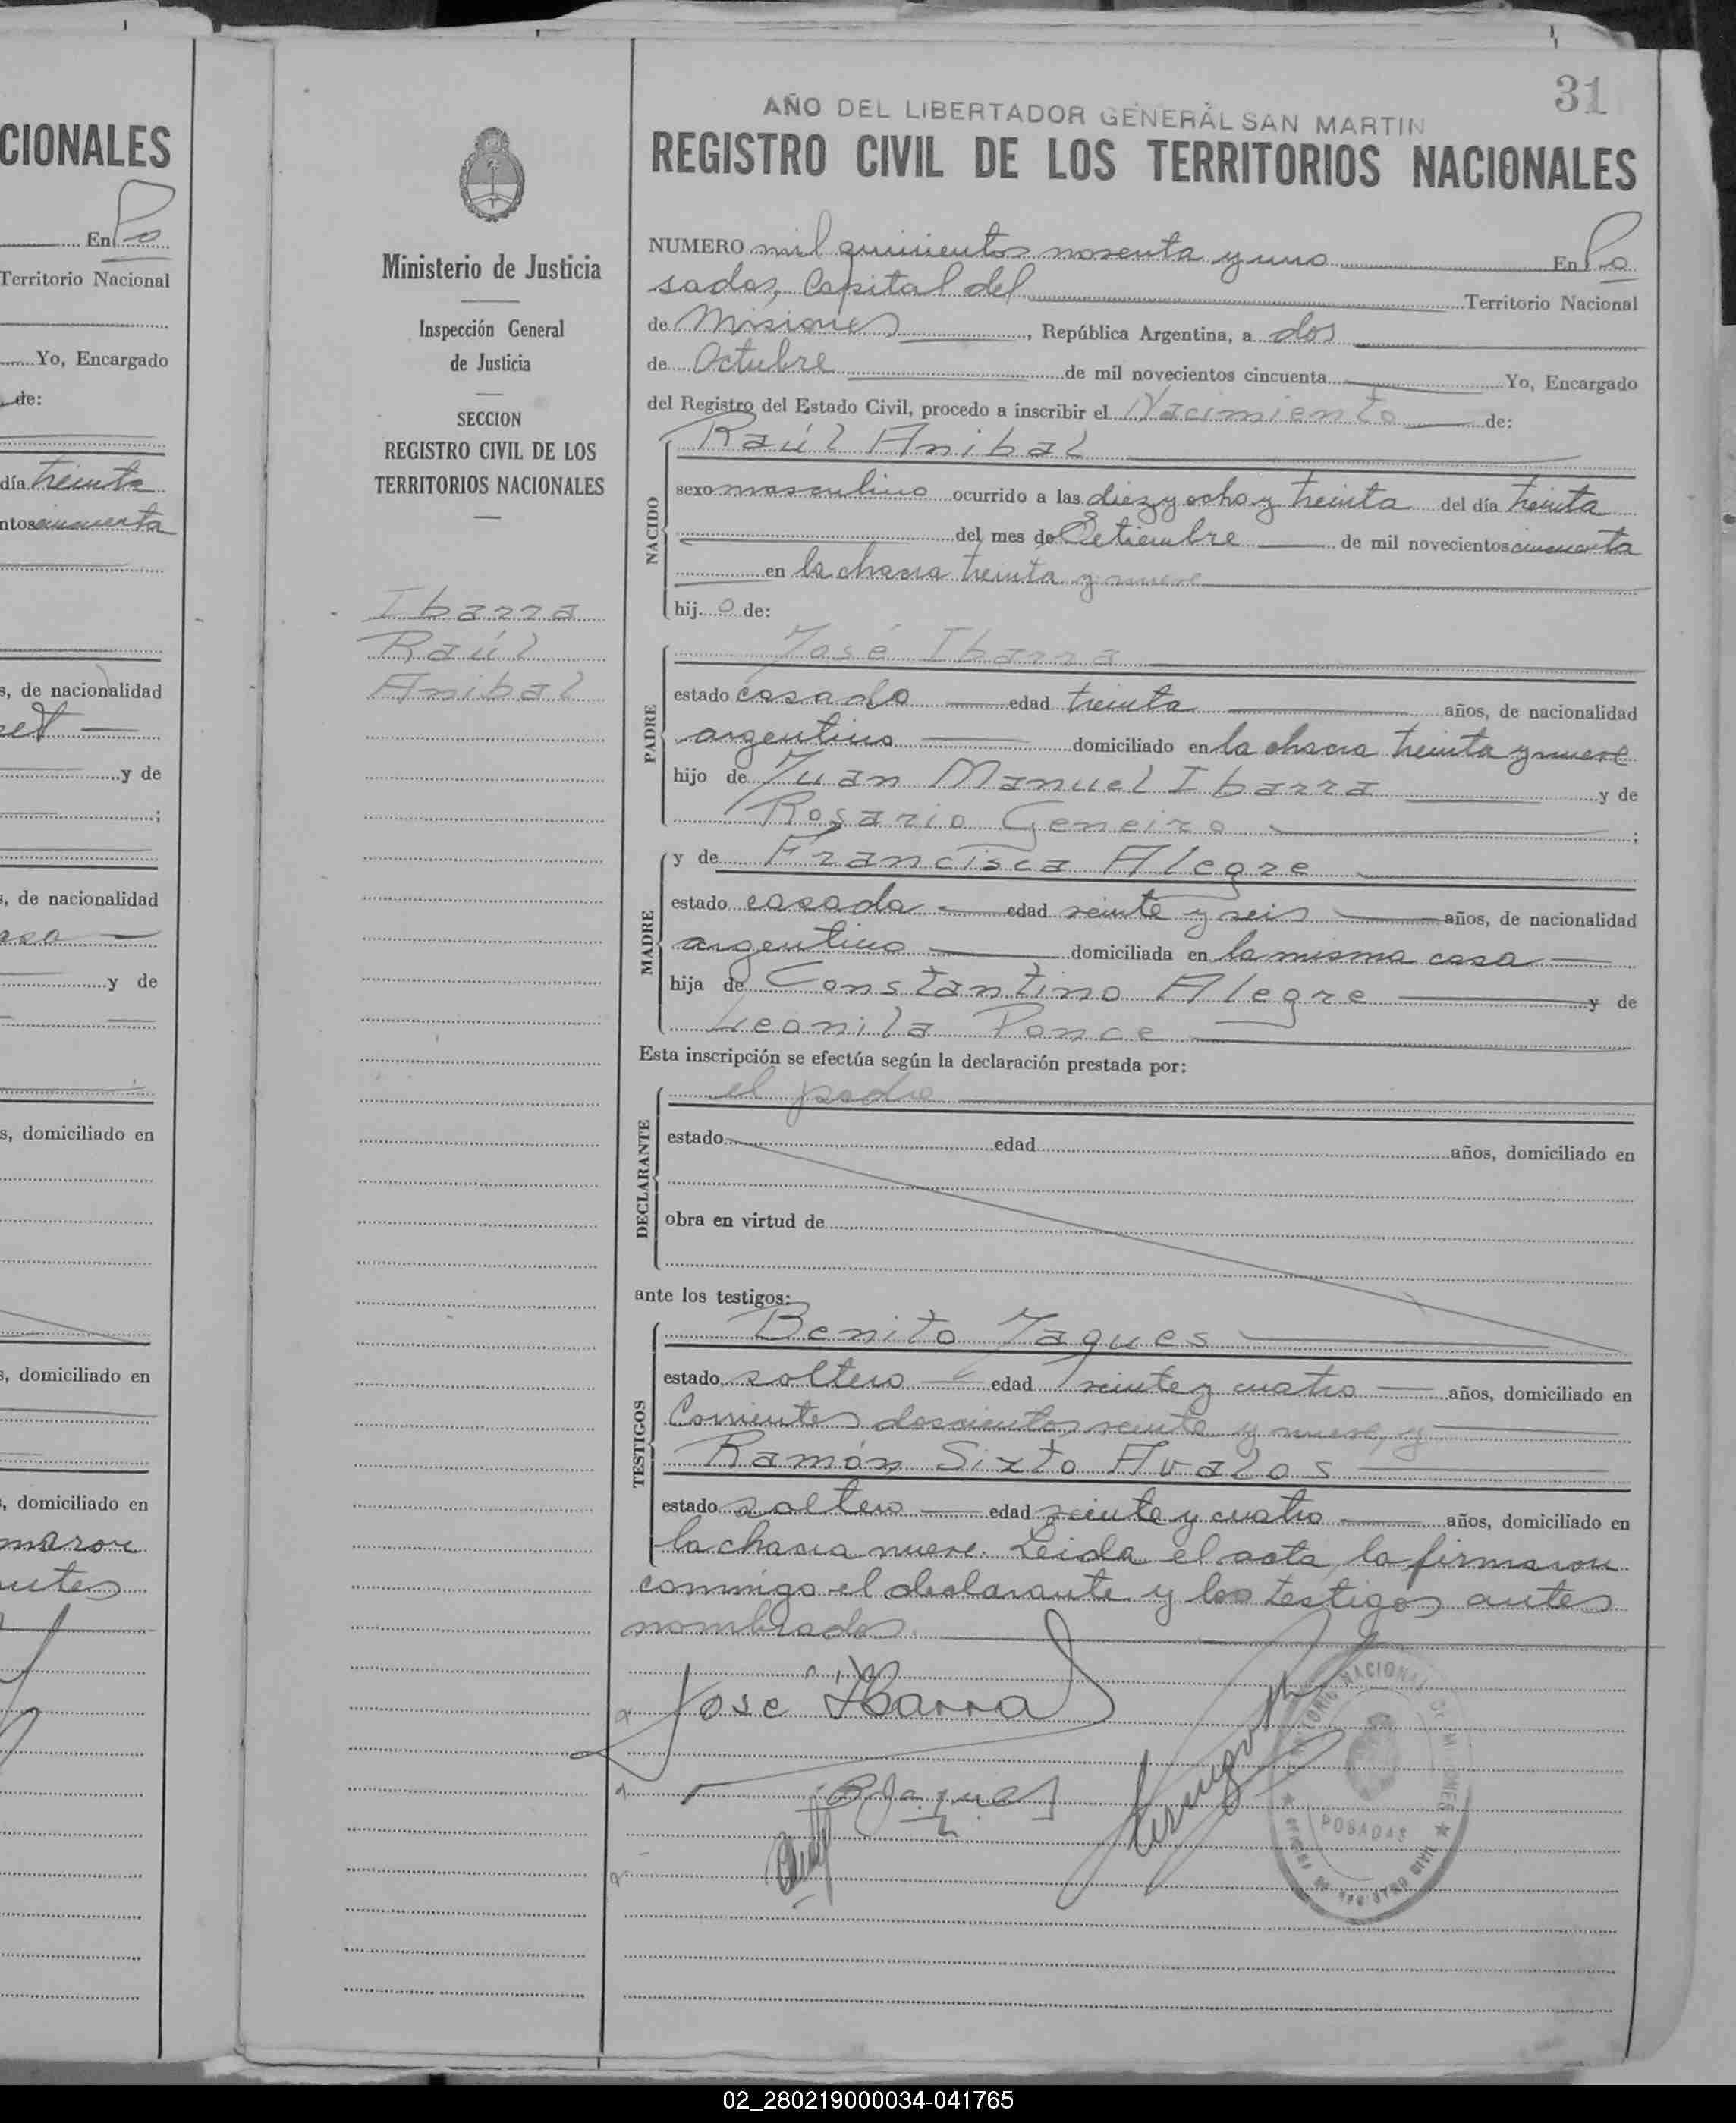 CIONALES
En Po
Territorio Nacional
Yo, Encargado
de:
día treinta
ntos cincuenta
s, de nacionalidad
y de
;
s, de nacionalidad
y de
s, domiciliado en
s, domiciliado en
, domiciliado en
maron
antes
Ministerio de Justicia
Inspección General
de Justicia
SECCION
REGISTRO CIVIL DE LOS
TERRITORIOS NACIONALES
Ibarra
Raúl
Anibal
31
AÑO DEL LIBERTADOR GENERAL SAN MARTIN
REGISTRO CIVIL DE LOS TERRITORIOS NACIONALES
NUMERO mil quinientos noventa y uno En Po
sadas, Capital del Territorio Nacional
de Misiones, República Argentina, a dos
de Octubre de mil novecientos cincuenta Yo, Encargado
del Registro del Estado Civil, procedo a inscribir el Nacimiento de:
Raúl Anibal
NACIDO
sexo masculino ocurrido a las diez y ocho y treinta del día treinta
del mes de Setiembre de mil novecientos cincuenta
en la chacra treinta y nueve
hij o de:
José Ibarra
PADRE
estado casado edad treinta años, de nacionalidad
argentino domiciliado en la chacra treinta y nueve
hijo de Juan Manuel Ibarra y de
Rosario Geneiro ;
y de Francisca Alegre
MADRE
estado casada edad veinte y seis años, de nacionalidad
argentina domiciliada en la misma casa
hija de Constantino Alegre y de
Leonila Ponce
Esta inscripción se efectúa según la declaración prestada por:
el padre
DECLARANTE
estado edad años, domiciliado en
obra en virtud de
ante los testigos:
Benito Jaques
TESTIGOS
estado soltero edad veinte y cuatro años, domiciliado en
Corrientes doscientos veinte y nueve, y
Ramón Sixto Avalos
estado soltero edad veinte y cuatro años, domiciliado en
la chacra nueve. Leida el acta, la firmaron
conmigo el declarante y los testigos antes
nombrados.
José Ibarra
B Jaques
TERRITORIO NACIONAL DE MISIONES
POSADAS
02_280219000034-041765